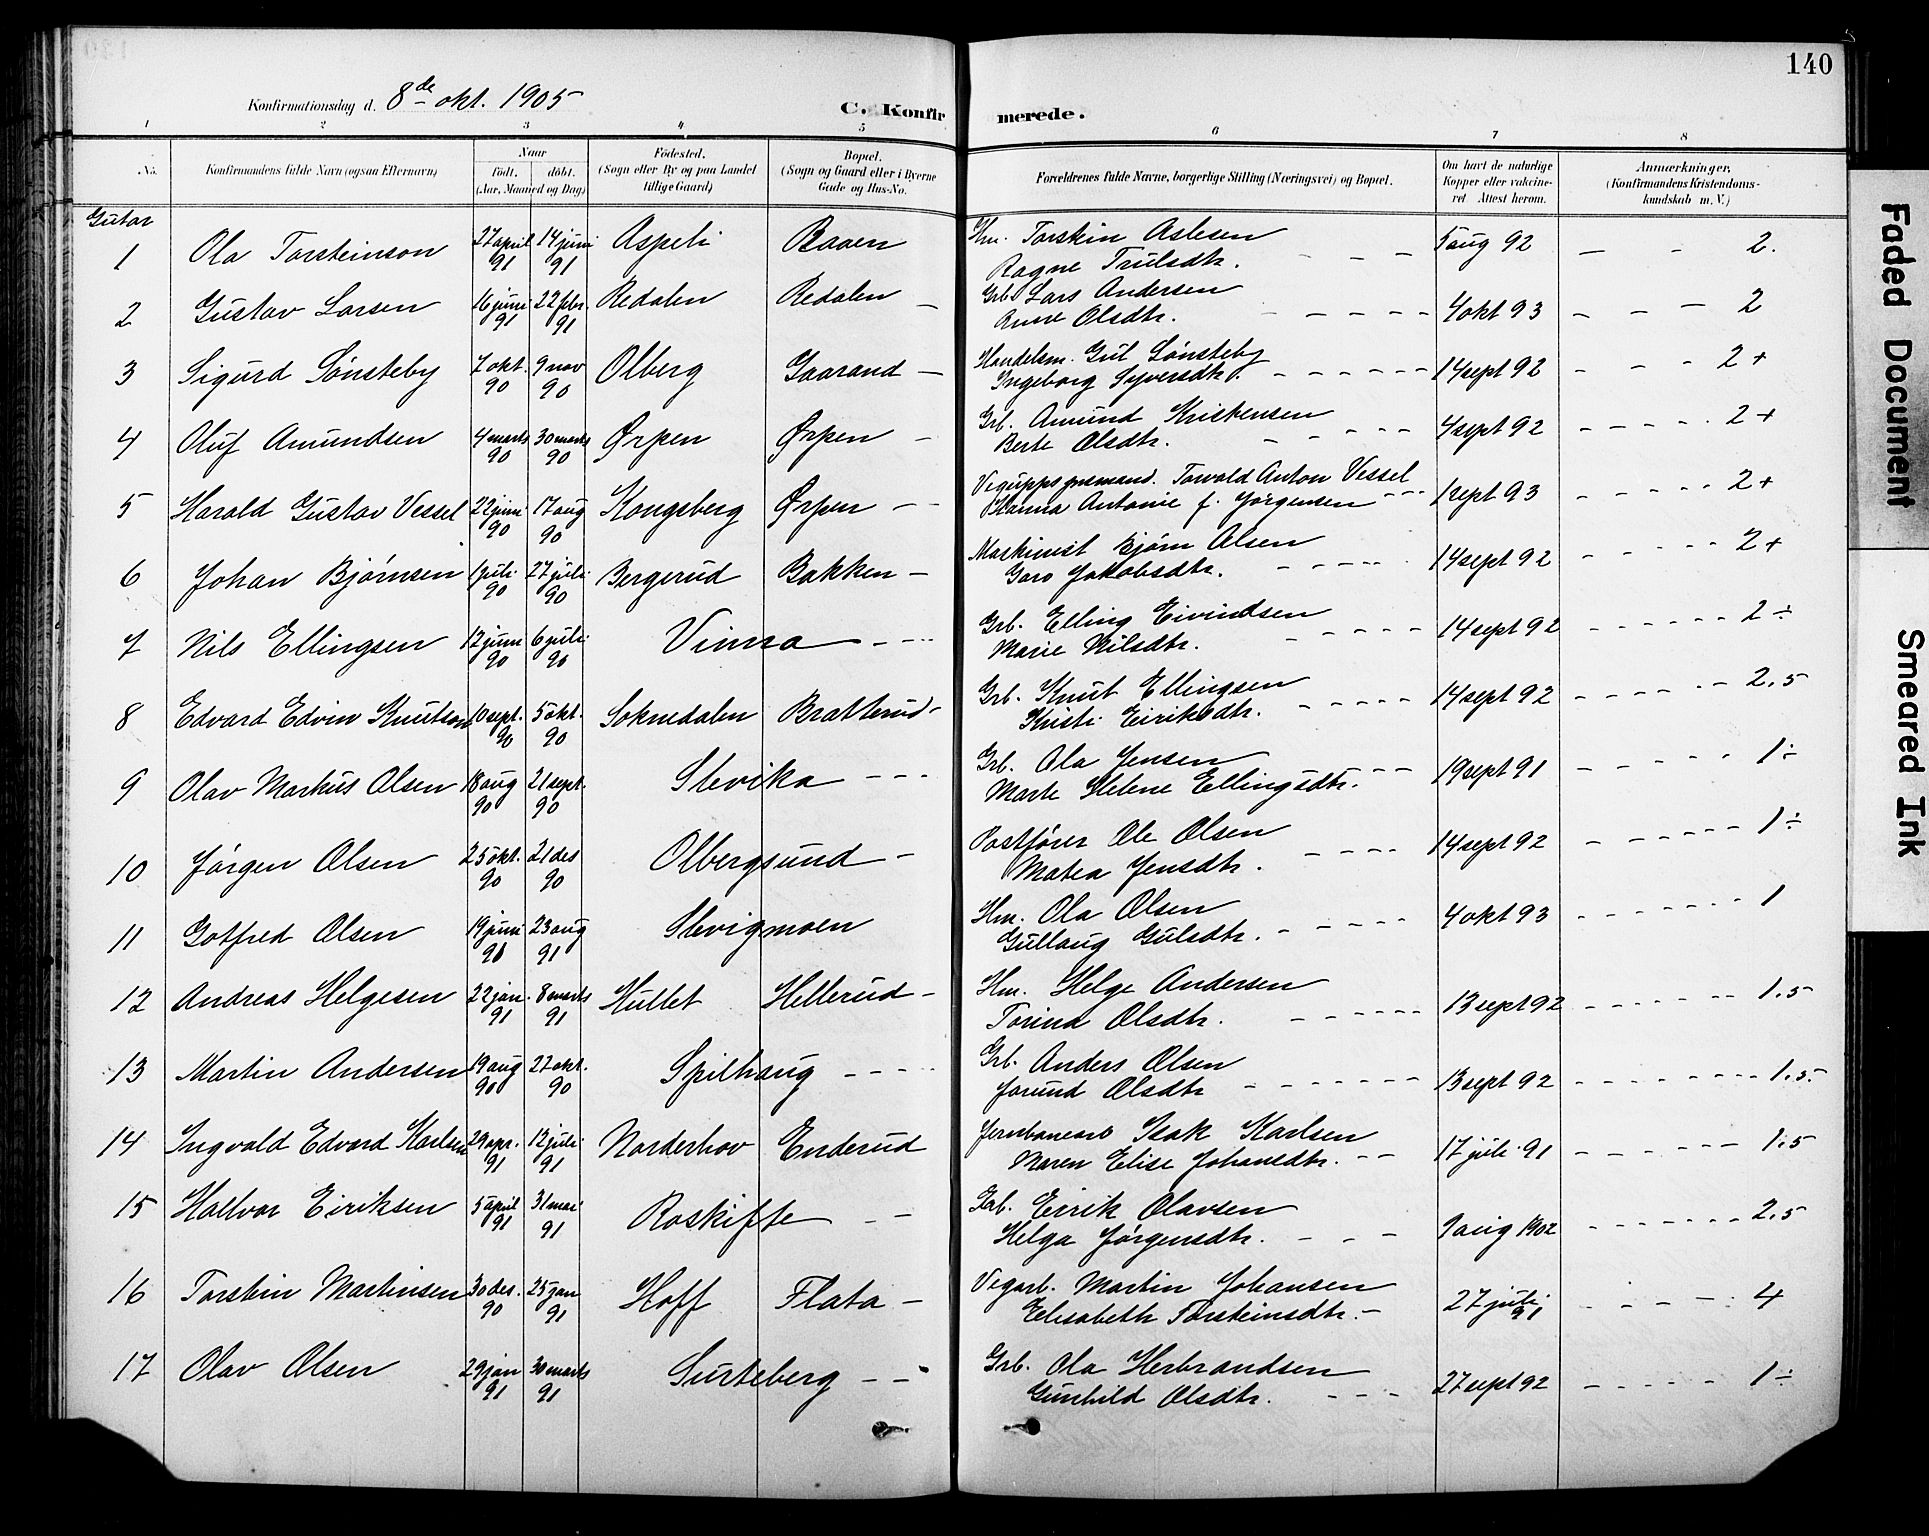 140
Konfirmationsdag d. 8de okt. 1905
C. Konfirmerede.
1 2 3 4 5 6 7 8
No. Konfirmandens fulde Navn (ogsaa Efternavn) Naar født. døbt. (Aar, Maaned og Dag) Fødested. (Sogn eller By og paa Landet tillige Gaard) Bopæl. (Sogn og Gaard eller i Byerne Gade og Hus-No. Forældrenes fulde Navne, borgerlige Stilling (Næringsvei) og Bopæl. Om havt de naturlige Kopper eller vaccineret. Attest herom. Anmærkninger. (Konfirmandens Kristendomskundskab m. V.)
Gutar
1 Ola Torsteinson 27 april 91 14 juni 91 Aspeli Baaen Hm. Torstein Aslesen Ragne Trulsdtr. 5 aug 92 2.
2 Gustav Larsen 16 juni 91 22 febr. 91 Redalen Redalen Grb. Lars Andersen Olsdtr. 4 okt 93 2
3 Sigurd Sønsteby 7 okt. 90 9 nov 90 Olberg Gaarand Handelsm. Gul Sønsteby Ingeborg Syversdtr. 14 sept 92 2+
4 Oluf Amundsen 4 marts 90 30 marts 90 Ørpen Ørpen Grb. Amund Kristensen Berte Olsdtr. 4 sept 92 2+
5 Harald Gustav Vessel 22 juni 90 17 aug 90 Kongsberg Ørpen Torvald Anton Vessel Hanna Antonie f. Jørgensen 1 sept 93 2+
6 Johan Bjørnsen 1 juli 90 27 juli 90 Bergerud Bakken Maskinist Bjørn Olsen Goro Jakobsdtr. 14 sept 92 2+
7 Nils Ellingsen 12 juni 90 6 juli 90 Vinna Grb. Elling Eivindsen Marie Nilsdtr. 14 sept 92 2÷
8 Edvard Edvin Knutson 10 sept. 90 5 okt. 90 Soknedalen Bratterud Grb. Knut Ellingsen Kristi Eiriksdtr. 14 sept 92 2.5
9 Olav Markus Olsen 18 aug 90 21 sept. 90 Slevika Grb. Ola Jensen Marte Helene Ellingsdtr. 19 sept 91 1÷
10 Jørgen Olsen 25 okt. 90 21 des 90 Olbergsund Postfører Ole Olsen Matea Jensdtr. 14 sept 92 1÷
11 Gotfred Olsen 19 juni 91 23 aug 91 Slevigmoen Hm. Ola Olsen Gullaug Gulsdtr. 4 okt 93 1
12 Andreas Helgesen 22 jan. 91 8 marts 91 Hullet Hellerud Hm. Helge Andersen Torina Olsdtr. 13 sept 92 1.5
13 Martin Andersen 19 aug 90 27 okt. 90 Spilhaug Grb. Anders Olsen Jorund Olsdtr 13 sept 92 1.5.
14 Ingvald Edvard Karlsen 29 apr. 91 12 juli 91 Norderhov Enderud Jernbanearb Isak Karlsen Maren Elise Johansdtr. 17 juli 91 1.5
15 Hallvor Eiriksen 5 april 91 31 mai 91 Roskifte Grb. Eirik Olavsen Helga Jørgensdtr. 9 aug 1902 2.5
16 Torstein Martinsen 30 des. 90 25 jan 91 Hoff Flata Vegarb. Martin Johansen Elisabeth Torsteinsdtr. 27 juli 91 4
17 Olav Olsen 29 jan 91 30 marts 91 Surteberg Grb. Ola Herbrandsen Gunhild Olsdtr. 27 sept 92 1÷
Faded Document
Smeared Ink